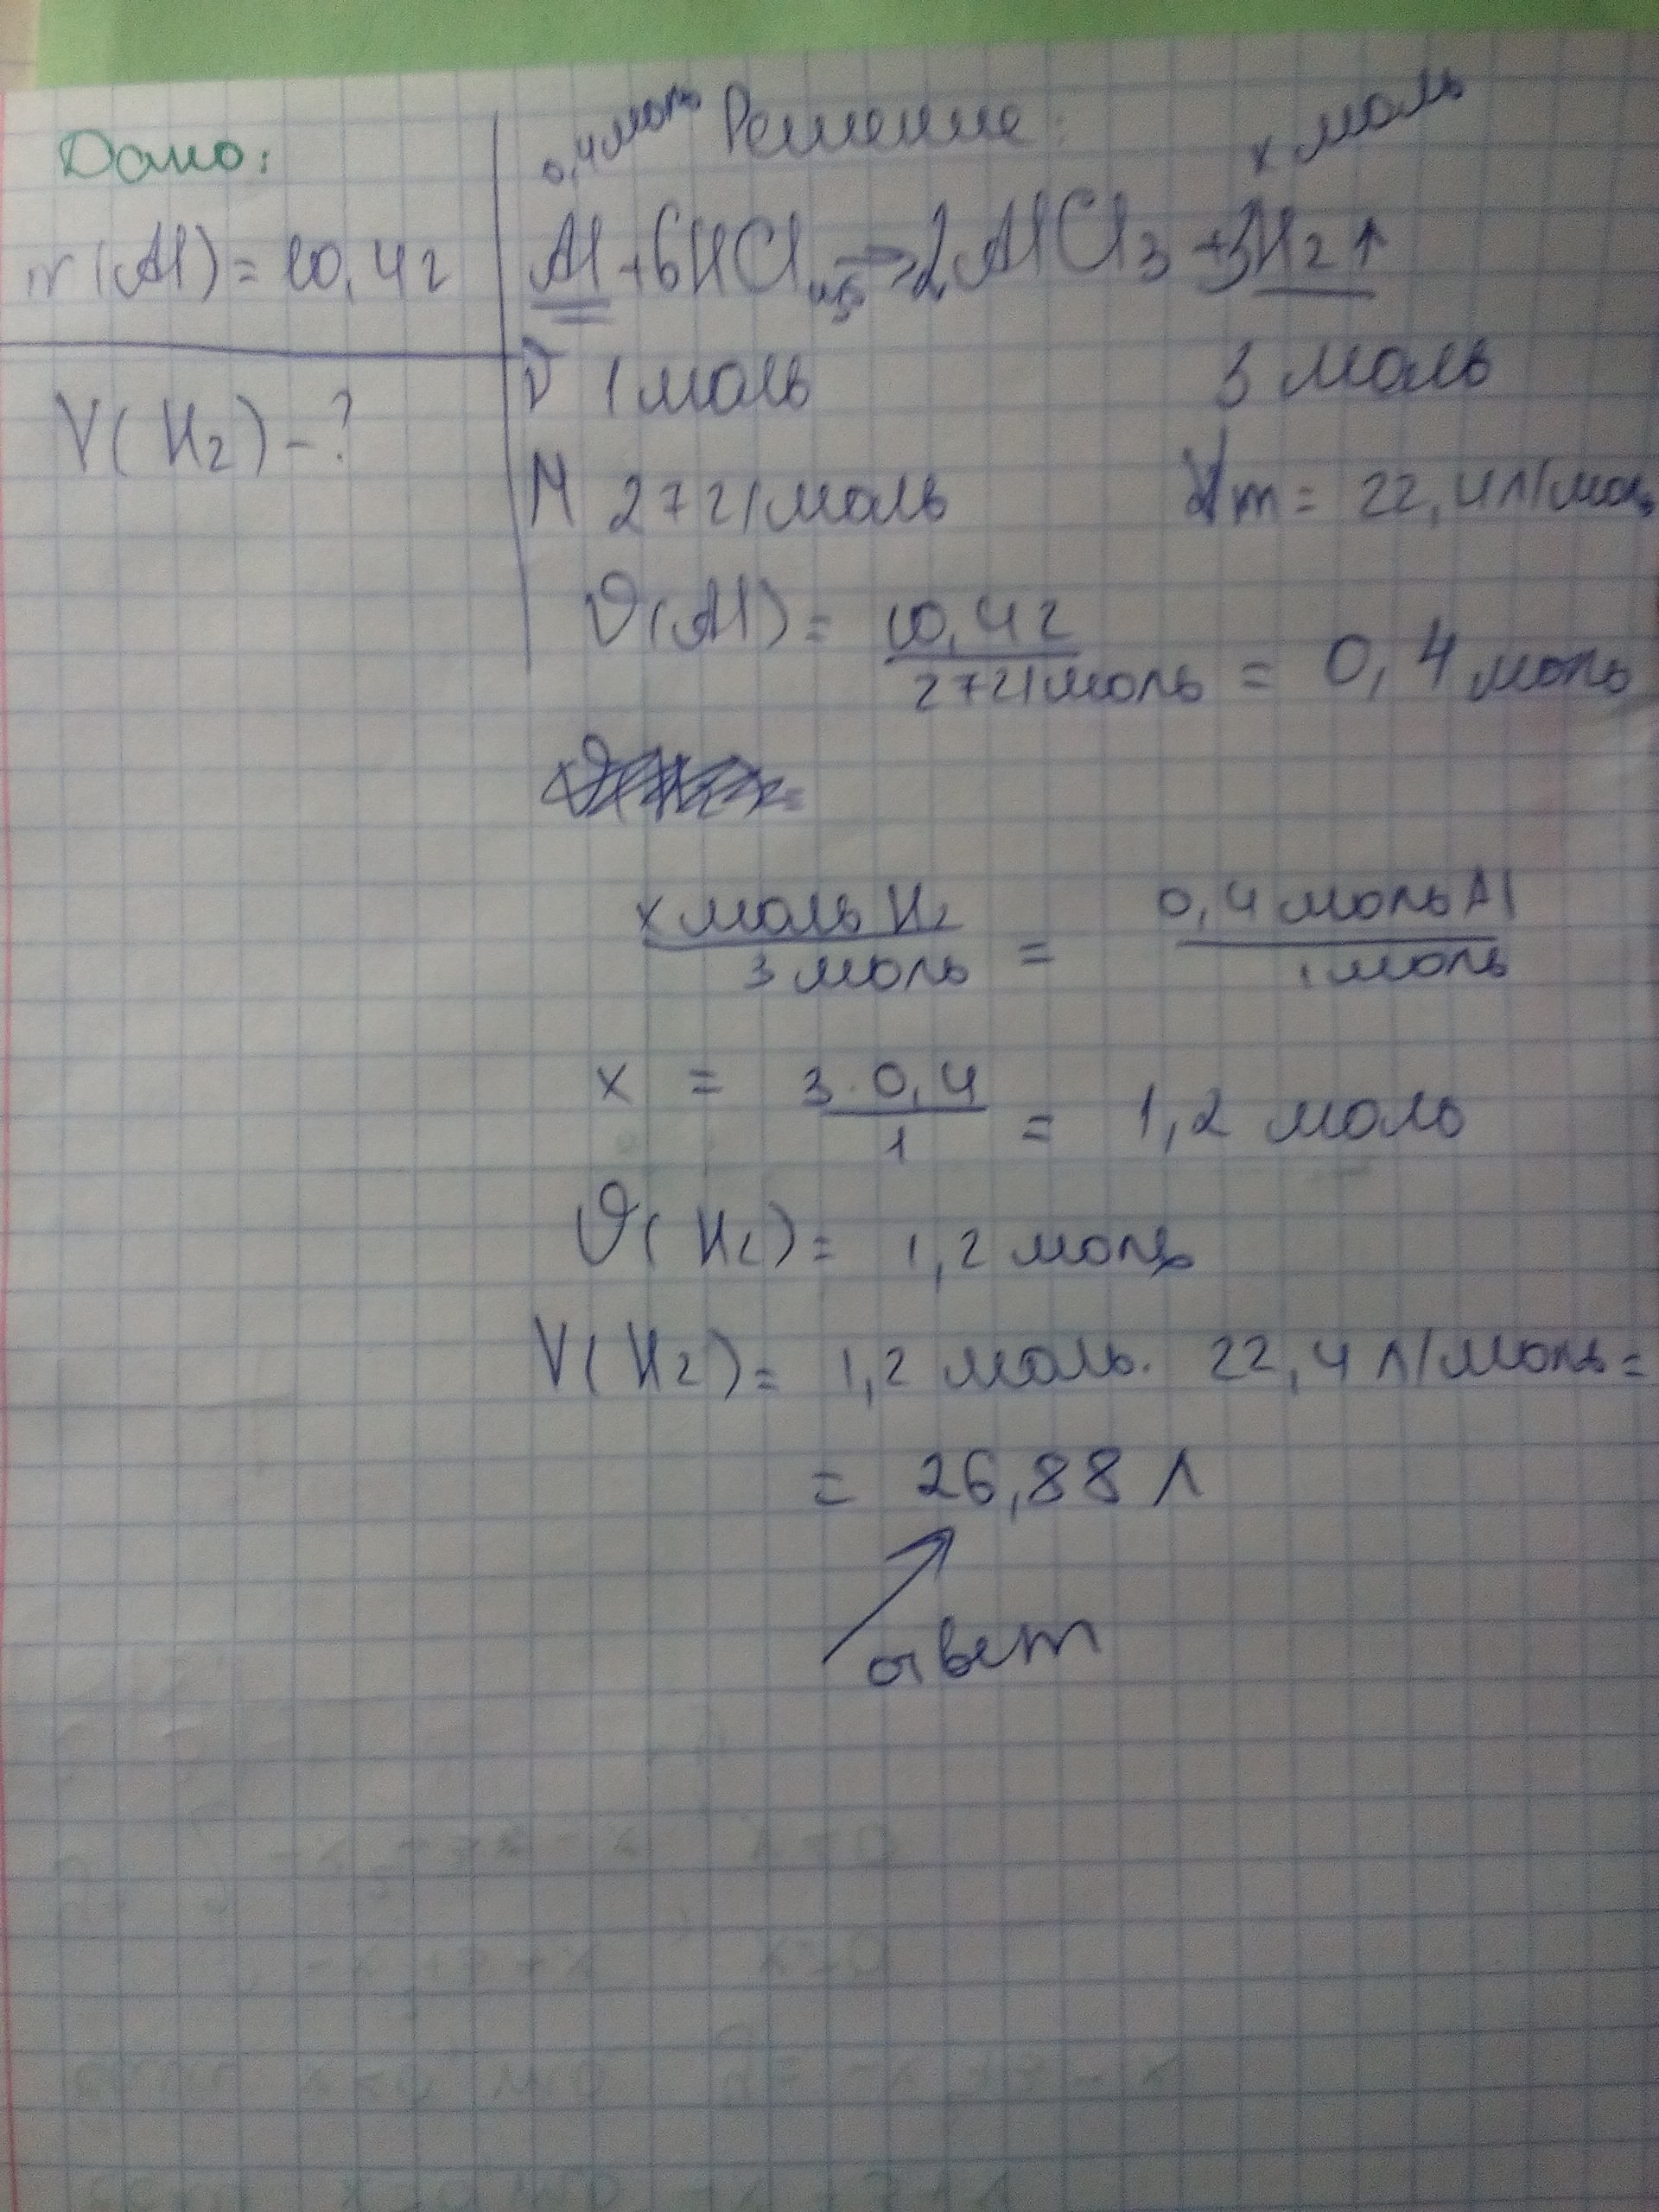 Дано:
m(Al) = 10,4г
V(H2) - ?
Решение:
0,4 моль
x моль
Al + 6HCl изб → 2AlCl3 + 3H2↑
ν 1 моль 3 моль
M 27 г/моль Vm = 22,4 л/моль
ν(Al) = 10,4г / 27 г/моль = 0,4 моль
x моль H2 / 3 моль = 0,4 моль Al / 1 моль
x = 3 · 0,4 / 1 = 1,2 моль
ν(H2) = 1,2 моль
V(H2) = 1,2 моль · 22,4 л/моль =
= 26,88 л
ответ